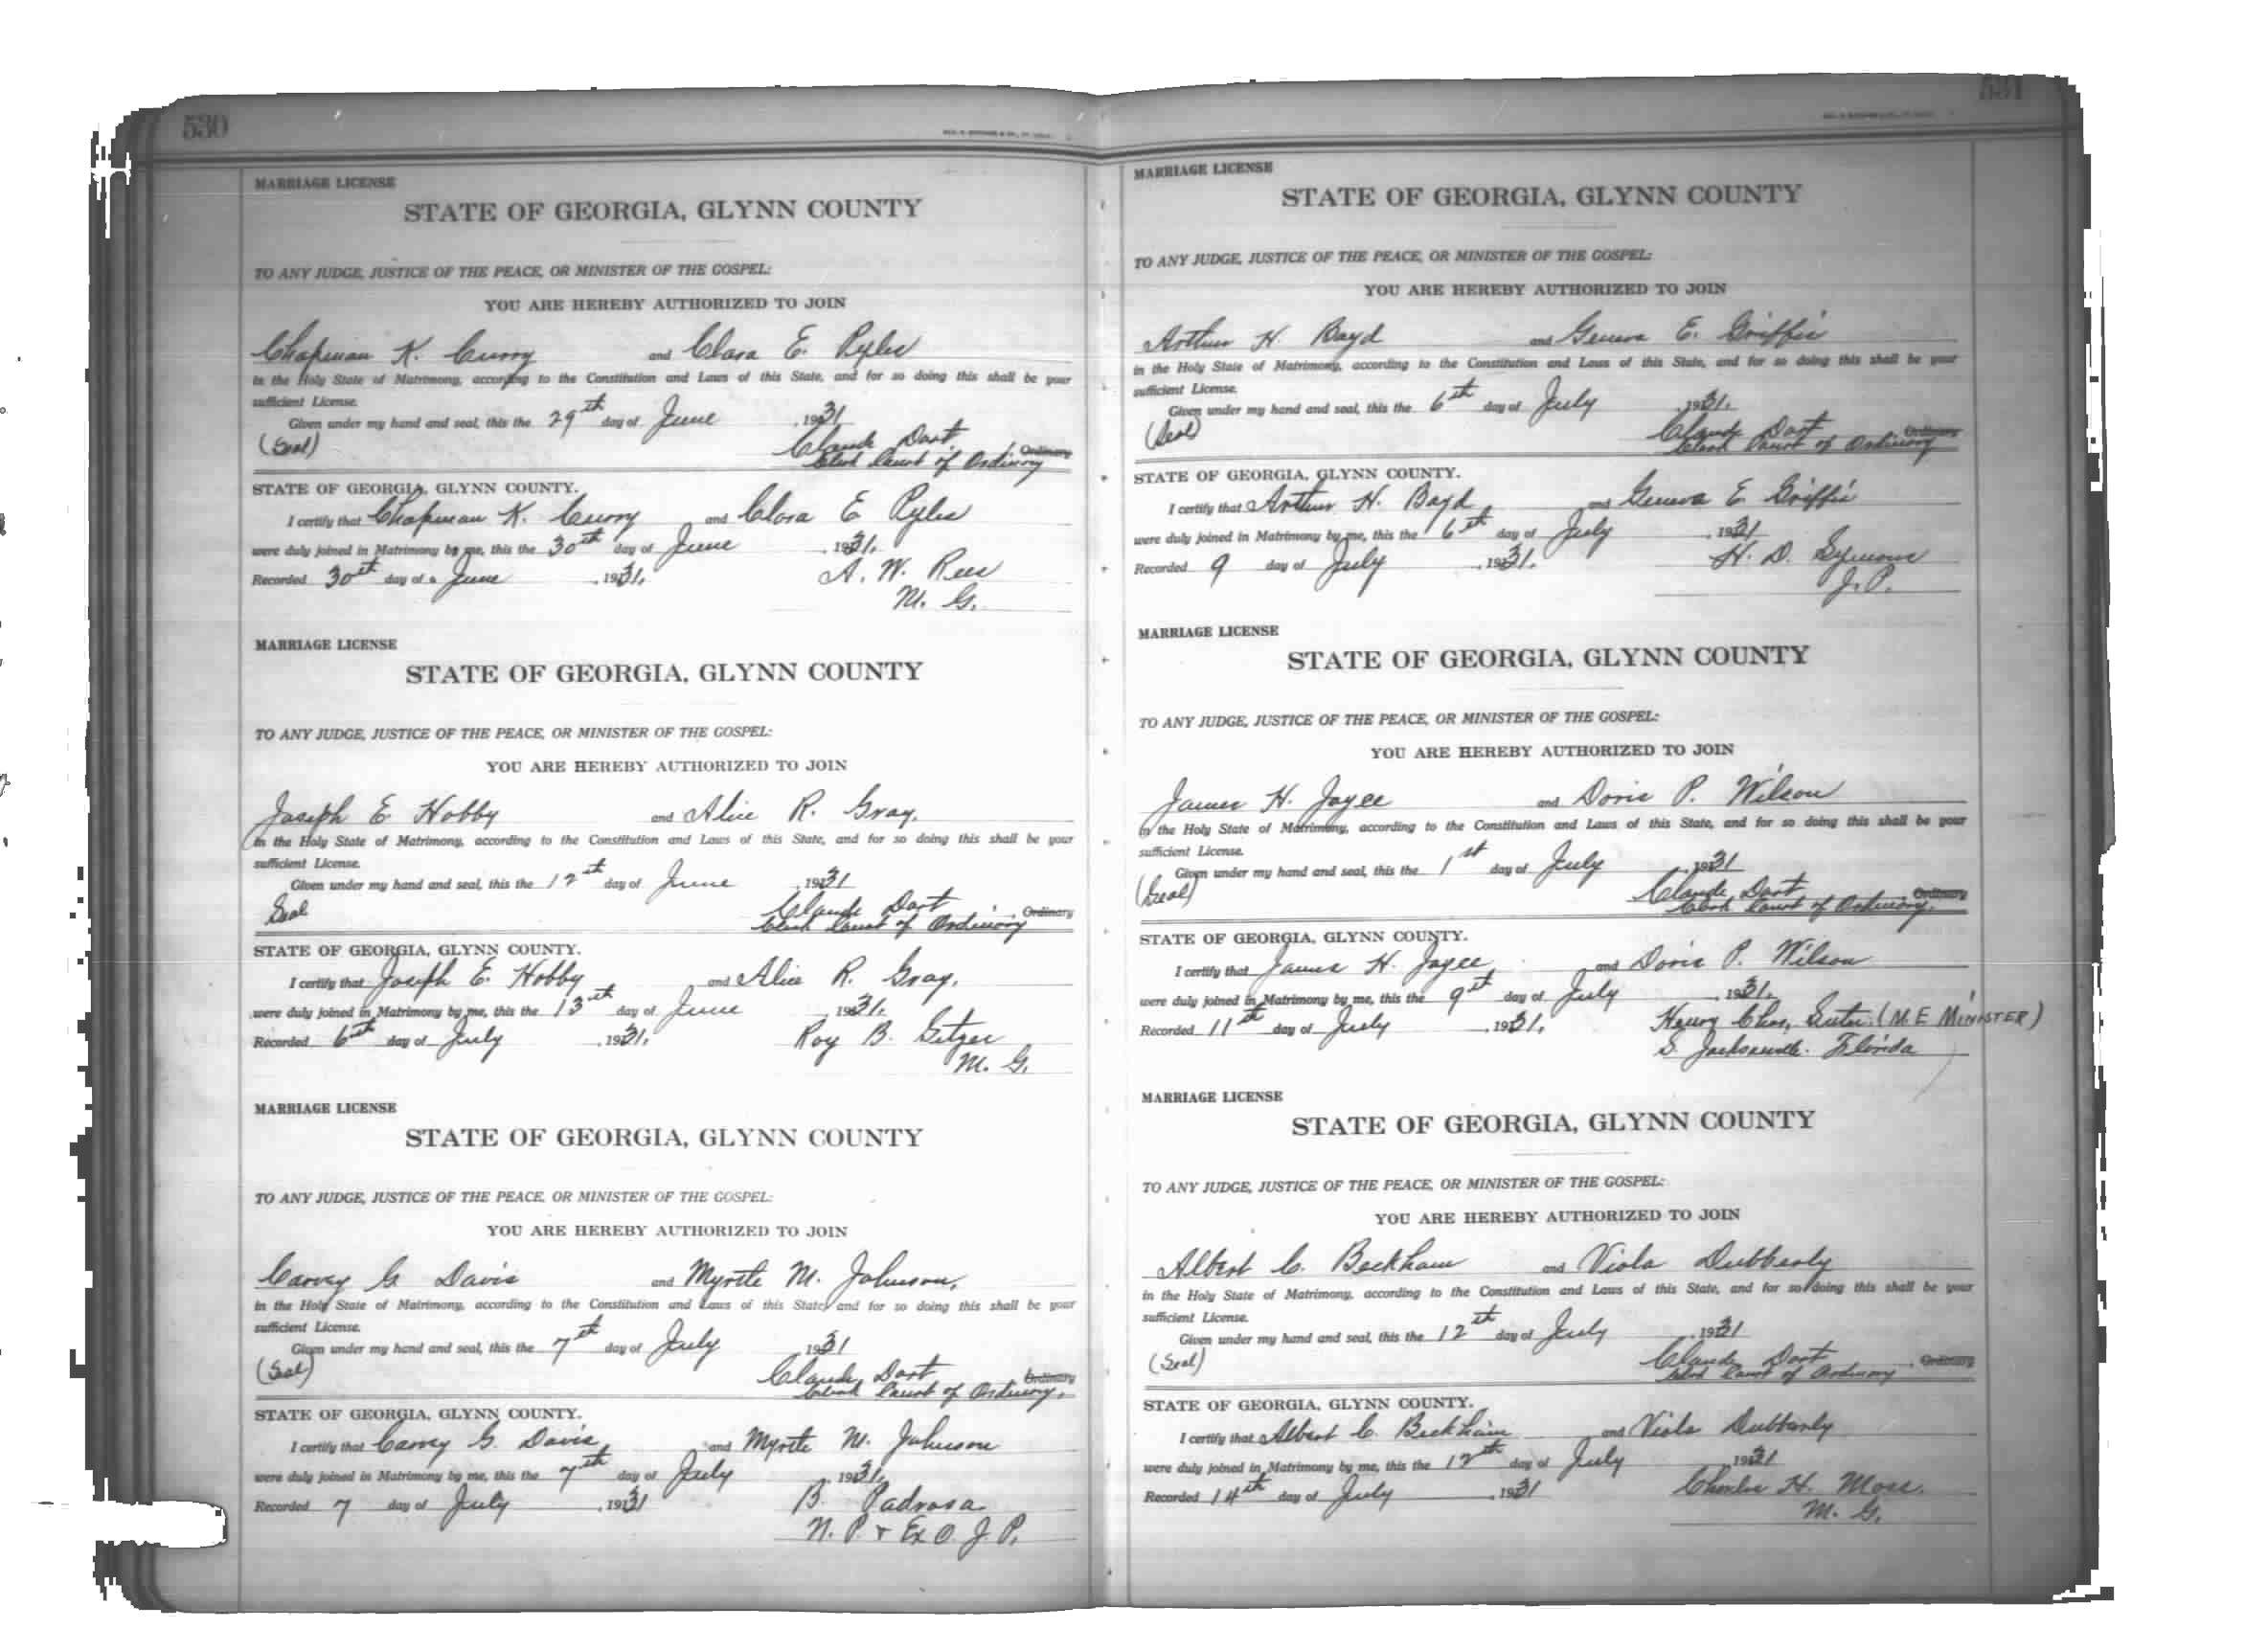 530
MARRIAGE LICENSE
STATE OF GEORGIA, GLYNN COUNTY
TO ANY JUDGE, JUSTICE OF THE PEACE, OR MINISTER OF THE GOSPEL:
YOU ARE HEREBY AUTHORIZED TO JOIN
Chapman K. Curry and Clara E. Pyles
in the Holy State of Matrimony, according to the Constitution and Laws of this State, and for so doing this shall be your
sufficient License.
Given under my hand and seal, this the 29th day of June 1931
(Seal) Claude Dart, Ordinary
Clerk Court of Ordinary
STATE OF GEORGIA, GLYNN COUNTY.
I certify that Chapman K. Curry and Clara E Pyles
were duly joined in Matrimony by me, this the 30th day of June 1931.
Recorded 30th day of June 1931. A. W. Rees
M. G.
MARRIAGE LICENSE
STATE OF GEORGIA, GLYNN COUNTY
TO ANY JUDGE, JUSTICE OF THE PEACE, OR MINISTER OF THE GOSPEL:
YOU ARE HEREBY AUTHORIZED TO JOIN
Joseph E Hobby and Alice R. Gray,
in the Holy State of Matrimony, according to the Constitution and Laws of this State, and for so doing this shall be your
sufficient License.
Given under my hand and seal, this the 12th day of June 1931
Seal Claude Dart, Ordinary
Clerk Court of Ordinary
STATE OF GEORGIA, GLYNN COUNTY.
I certify that Joseph E. Hobby and Alice R. Gray,
were duly joined in Matrimony by me, this the 13th day of June 1931.
Recorded 6th day of July 1931. Roy B. Getzer
M. G.
MARRIAGE LICENSE
STATE OF GEORGIA, GLYNN COUNTY
TO ANY JUDGE, JUSTICE OF THE PEACE, OR MINISTER OF THE GOSPEL:
YOU ARE HEREBY AUTHORIZED TO JOIN
Carvey G Davis and Myrtle M. Johnson,
in the Holy State of Matrimony, according to the Constitution and Laws of this State, and for so doing this shall be your
sufficient License.
Given under my hand and seal, this the 7th day of July 1931
(Seal) Claude Dart Ordinary
Clerk Court of Ordinary,
STATE OF GEORGIA, GLYNN COUNTY.
I certify that Carvey G. Davis and Myrtle M. Johnson
were duly joined in Matrimony by me, this the 7th day of July 1931,
Recorded 7 day of July 1931 B. Padrosa
N. P. & Ex O. J. P.
531
MARRIAGE LICENSE
STATE OF GEORGIA, GLYNN COUNTY
TO ANY JUDGE, JUSTICE OF THE PEACE, OR MINISTER OF THE GOSPEL:
YOU ARE HEREBY AUTHORIZED TO JOIN
Arthur H. Boyd and Geneva E. Griffin
in the Holy State of Matrimony, according to the Constitution and Laws of this State, and for so doing this shall be your
sufficient License.
Given under my hand and seal, this the 6th day of July 1931.
(Seal) Claude Dart Ordinary
Clerk Court of Ordinary
STATE OF GEORGIA, GLYNN COUNTY.
I certify that Arthur H. Boyd and Geneva E Griffin
were duly joined in Matrimony by me, this the 6th day of July 1931
Recorded 9 day of July 1931. H. D. Symons
J. P.
MARRIAGE LICENSE
STATE OF GEORGIA, GLYNN COUNTY
TO ANY JUDGE, JUSTICE OF THE PEACE, OR MINISTER OF THE GOSPEL:
YOU ARE HEREBY AUTHORIZED TO JOIN
James H. Joyce and Doris P. Wilson
in the Holy State of Matrimony, according to the Constitution and Laws of this State, and for so doing this shall be your
sufficient License.
Given under my hand and seal, this the 1st day of July 1931
(Seal) Claude Dart Ordinary
Clerk Court of Ordinary.
STATE OF GEORGIA, GLYNN COUNTY.
I certify that James H. Joyce and Doris P. Wilson
were duly joined in Matrimony by me, this the 9th day of July 1931.
Recorded 11th day of July 1931. Henry Chas, Suter. (M.E MINISTER)
S. Jacksonville. Florida
MARRIAGE LICENSE
STATE OF GEORGIA, GLYNN COUNTY
TO ANY JUDGE, JUSTICE OF THE PEACE, OR MINISTER OF THE GOSPEL:
YOU ARE HEREBY AUTHORIZED TO JOIN
Albert C. Beckham and Viola Dubberly
in the Holy State of Matrimony, according to the Constitution and Laws of this State, and for so doing this shall be your
sufficient License.
Given under my hand and seal, this the 12th day of July 1931
(Seal) Claude Dart, Ordinary
Clerk Court of Ordinary
STATE OF GEORGIA, GLYNN COUNTY.
I certify that Albert C. Beckham and Viola Dubberly
were duly joined in Matrimony by me, this the 12th day of July 1931
Recorded 14th day of July 1931 Charles H. Moss.
M. G.